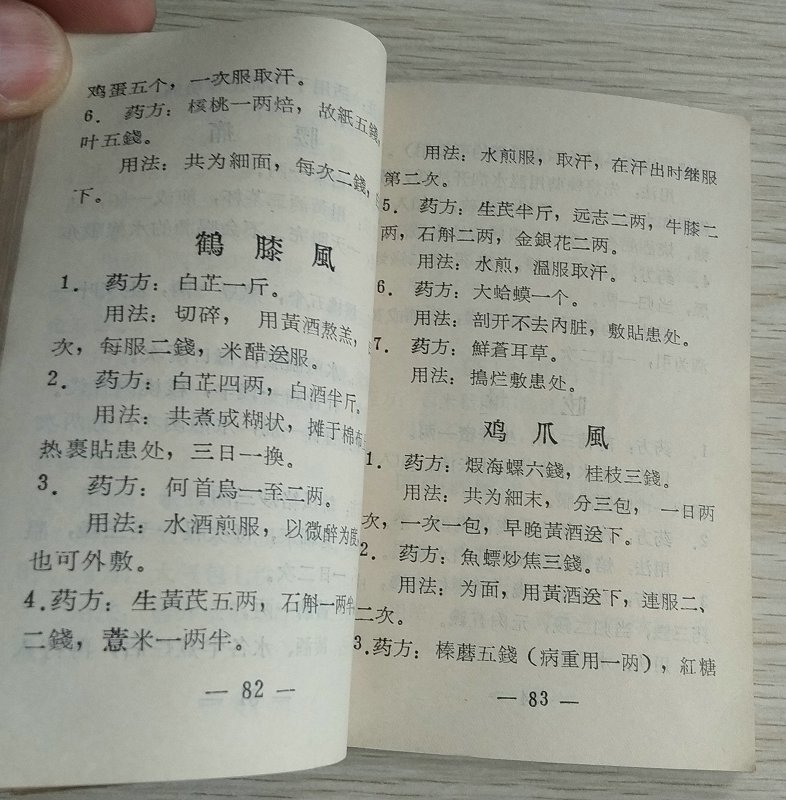 鸡蛋五个，一次服取汗。
6．药方：核桃一两焙，故紙五錢，
叶五錢。
用法：共为細面，每次二錢，
下。
鶴膝風
1．药方：白芷一斤。
用法：切碎，用黃酒熬羔，
次，每服二錢，米醋送服。
2．药方：白芷四两，白酒半斤。
用法：共煮成糊状，摊于棉布
热裹貼患处，三日一换。
3．药方：何首烏一至二两。
用法：水酒煎服，以微醉为度
也可外敷。
4．药方：生黃芪五两，石斛一两半
二錢，薏米一两半。
— 82 —
用法：水煎服，取汗，在汗出时继服
第二次。
5．药方：生芪半斤，远志二两，牛膝二
两，石斛二两，金銀花二两。
用法：水煎，溫服取汗。
6．药方：大蛤蟆一个。
用法：剖开不去內脏，敷貼患处。
7．药方：鮮蒼耳草。
用法：搗烂敷患处。
鸡爪風
1．药方：蝦海螺六錢，桂枝三錢。
用法：共为細末，分三包，一日两
次，一次一包，早晚黃酒送下。
2．药方：魚螵炒焦三錢。
用法：为面，用黃酒送下，連服二、
二次。
3．药方：榛蘑五錢（病重用一两），紅糖
— 83 —